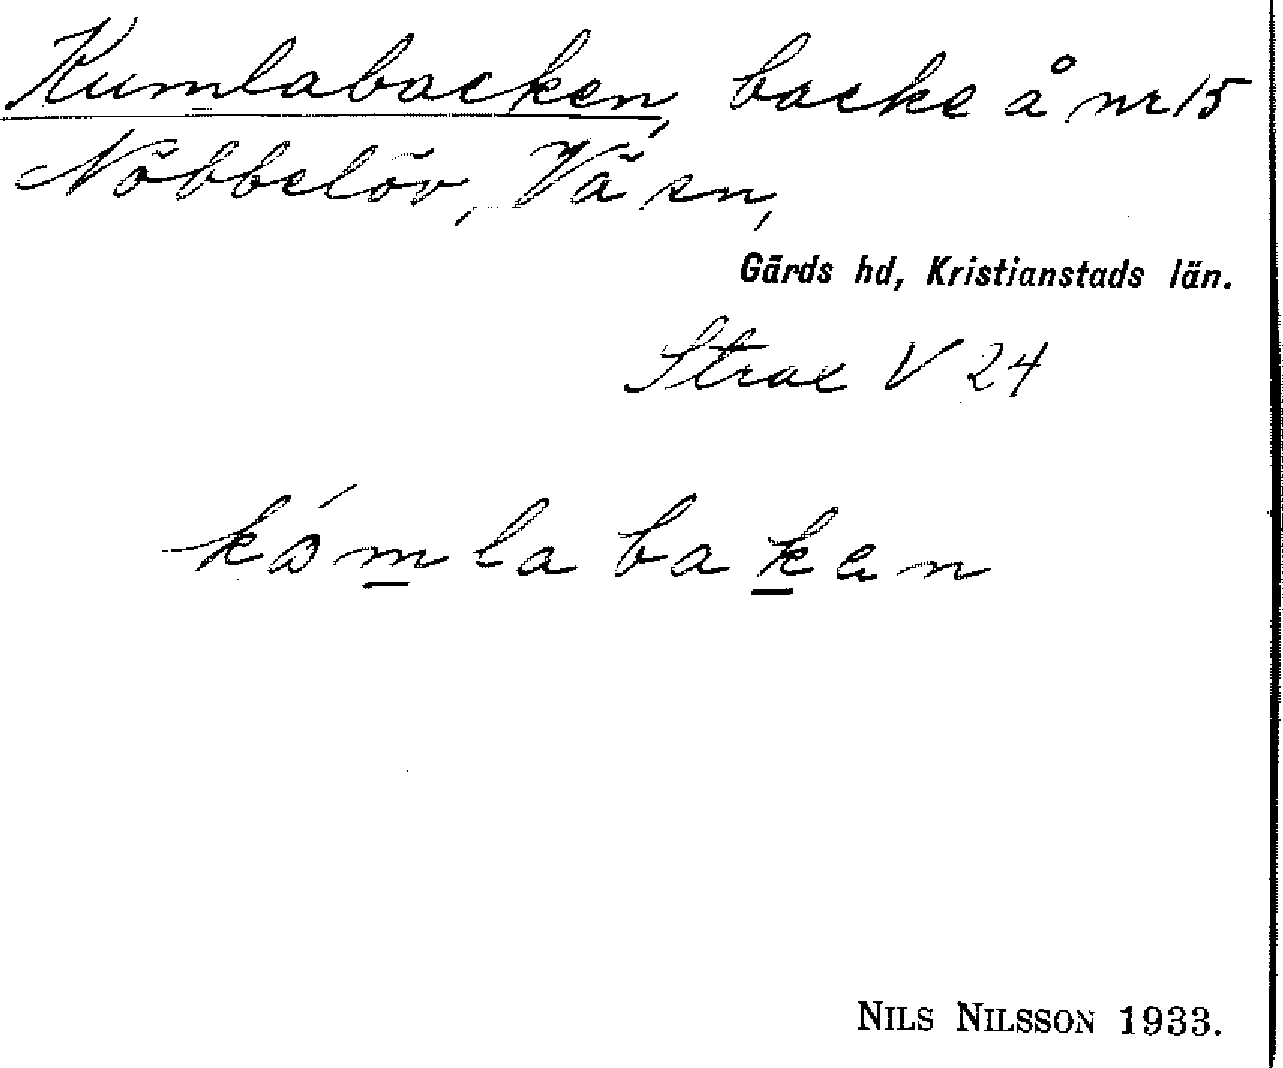 Kumlabacken, backe å nr 15
Nöbbelöv, Vä sn,
Gärds hd, Kristianstads län.
Strae V 24
kómlabakan
NILS NILSSON 1933.